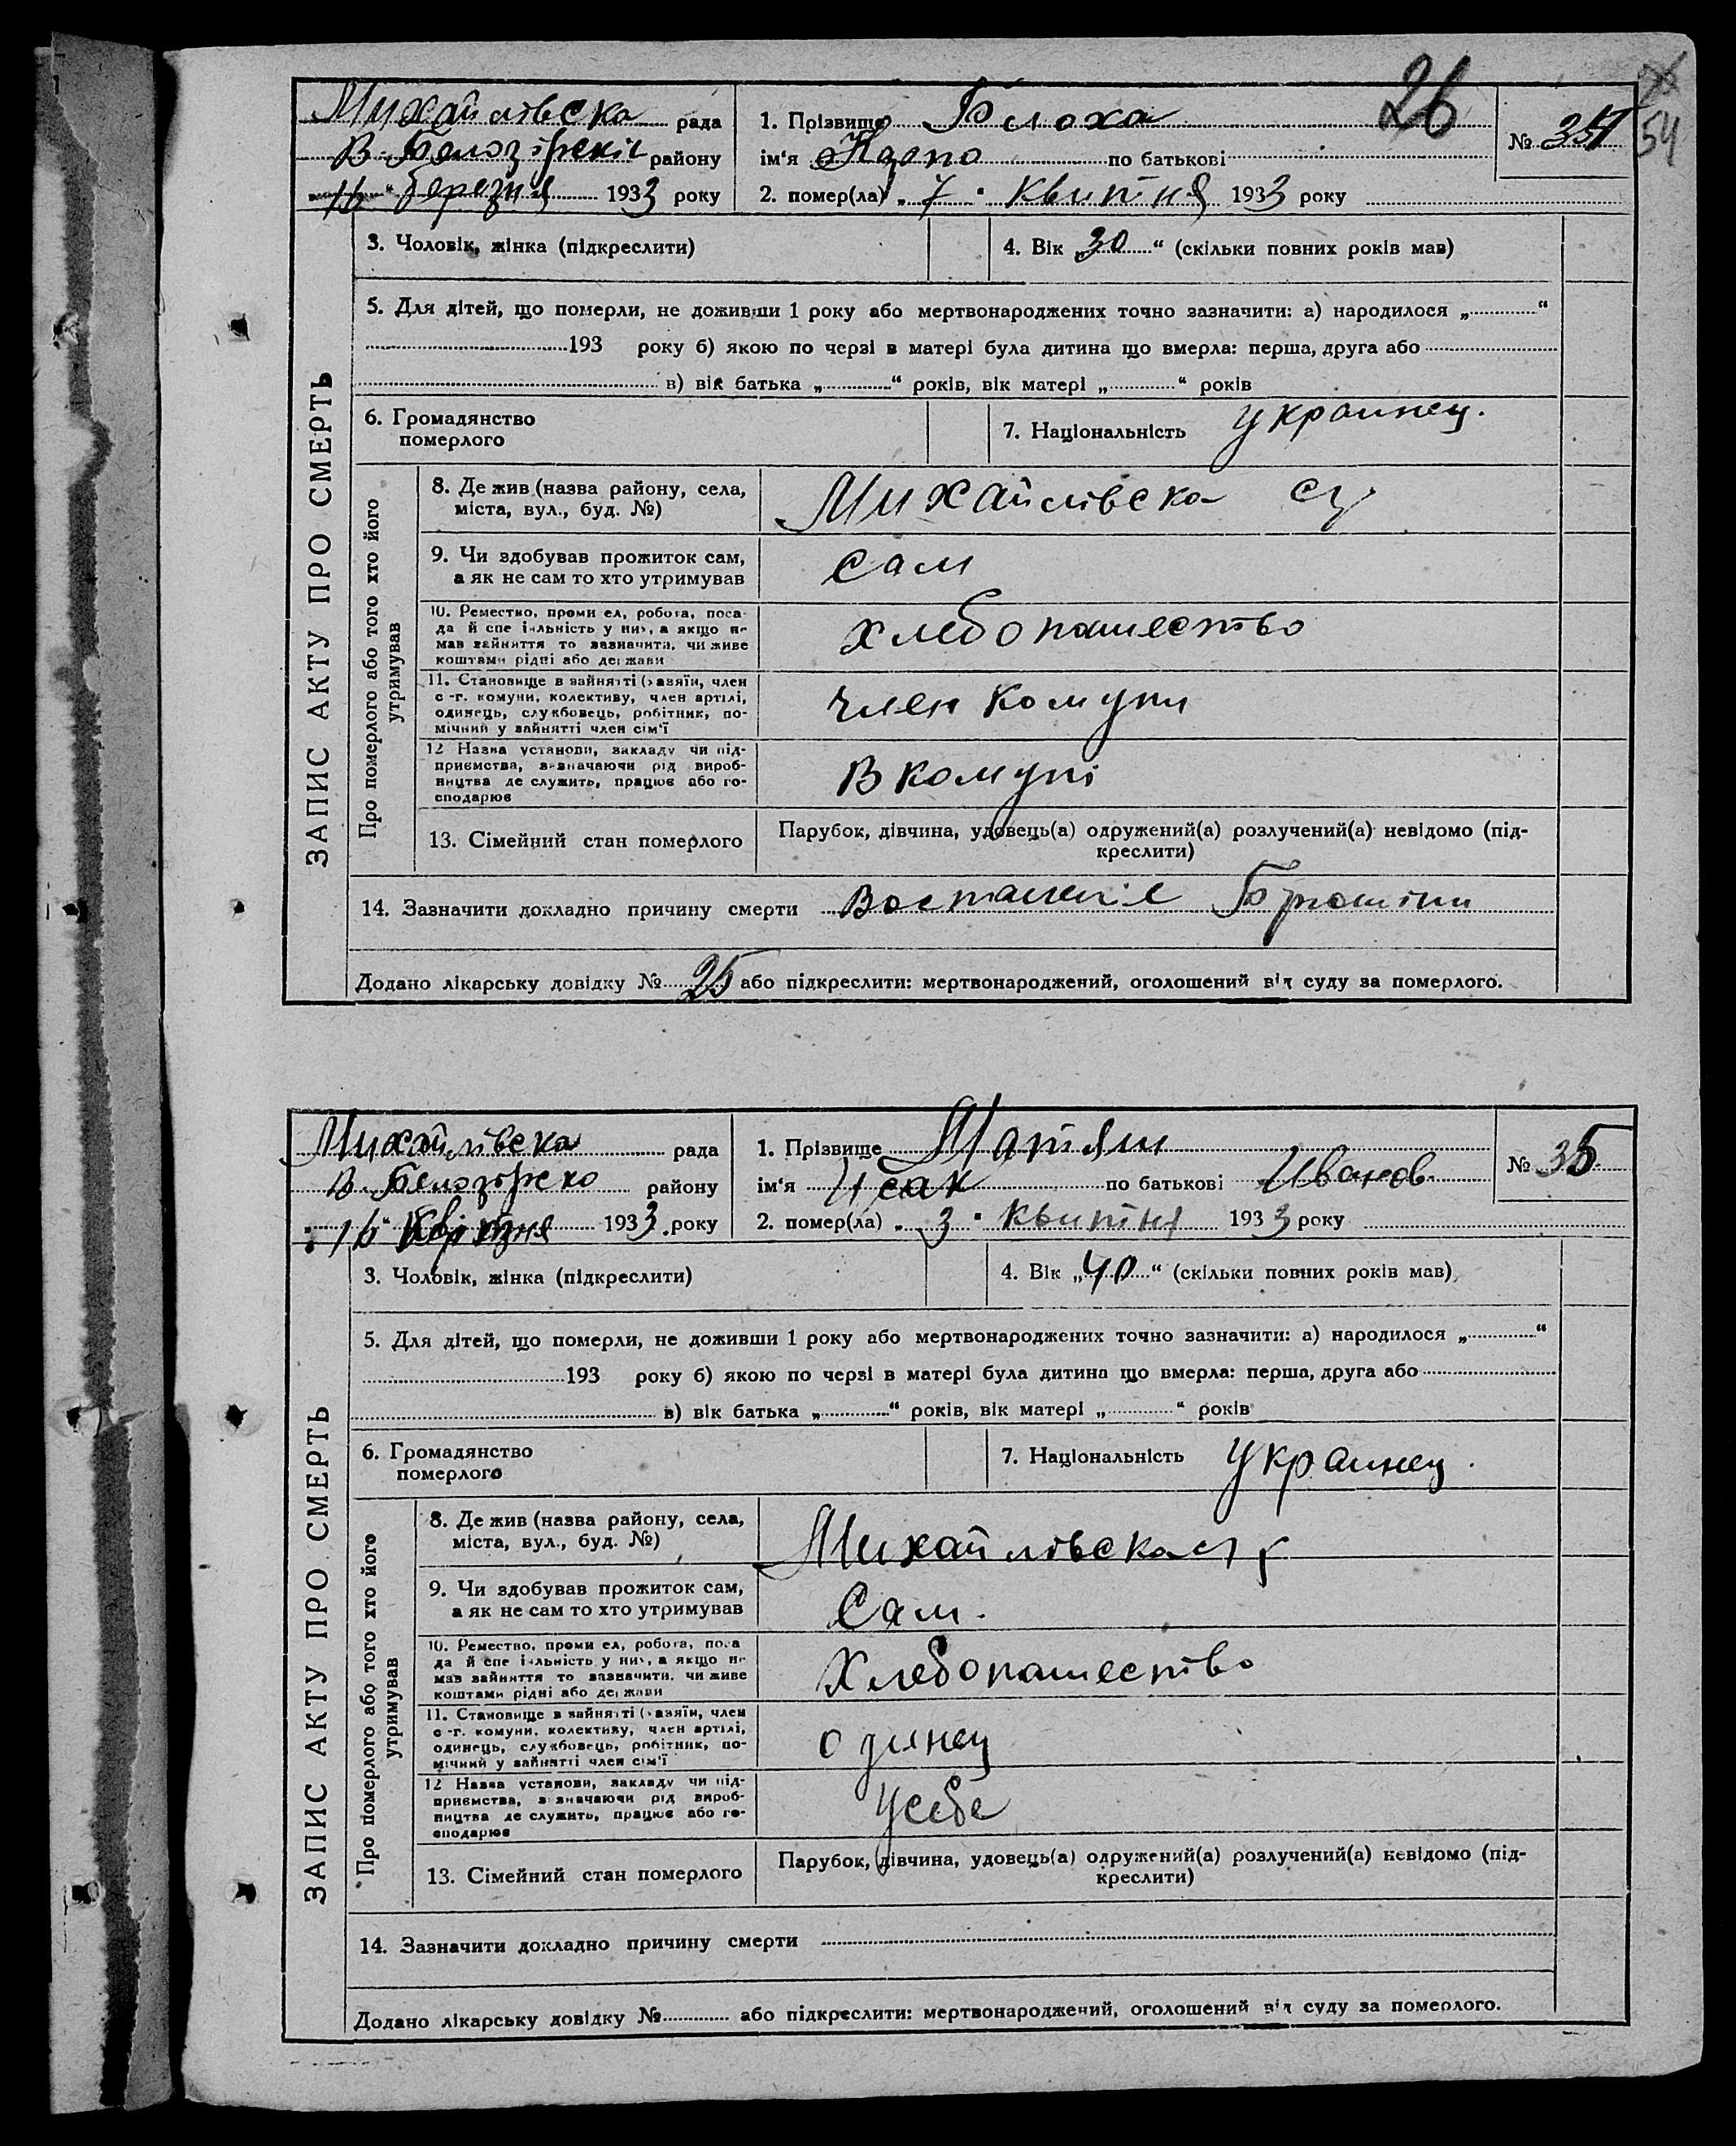 26
54
Михайлівска рада
В-Белозірскіс району
"16" березня 1933 року
1. Прізвище Блоха
ім'я Карпо по батькові
2. помер(ла) „7" квитня 1933 року
№ 34
ЗАПИС АКТУ ПРО СМЕРТЬ
3. Чоловік, жінка (підкреслити)
4. Вік „30" (скільки повних років мав)
5. Для дітей, що померли, не доживши 1 року або мертвонароджених точно зазначити: а) народилося „ "
193 року б) якою по черзі в матері була дитина що вмерла: перша, друга або
в) вік батька „ " років, вік матері „ " років
6. Громадянство
померлого
7. Національність Украинец.
Про померлого або того хто його
утримував
8. Де жив (назва району, села,
міста, вул., буд. №)
Михайлівска
9. Чи здобував прожиток сам,
а як не сам то хто утримував
сам
10. Ремество, проми ел, робота, поса-
да й спе іяльність у них, а якщо не
мав зайняття то зазначити, чи живе
коштами рідні або держави
хлебопашество
11. Становище в зайнятті (хазяїн, член
с-г. комуни, колективу, член артілі,
одинець, службовець, робітник, по-
мічний у зайнятті член сім'ї
член комуни
12 Назва установи, закладу чи під-
приємства, зазначаючи рід вироб-
ництва де служить, працює або го-
сподарює
В комуні
13. Сімейний стан померлого
Парубок, дівчина, удовець(а) одружений(а) розлучений(а) невідомо (під-
креслити)
14. Зазначити докладно причину смерти Воспаленіе Брюшіни
Додано лікарську довідку № 25 або підкреслити: мертвонароджений, оголошений від суду за померлого.
Михайлівска рада
В-Белозірско району
"16" Квітня 1933 року
1. Прізвище
ім'я Исак по батькові Иванов.
2. помер(ла) „3" квитня 1933 року
№ 35
ЗАПИС АКТУ ПРО СМЕРТЬ
3. Чоловік, жінка (підкреслити)
4. Вік „40" (скільки повних років мав)
5. Для дітей, що померли, не доживши 1 року або мертвонароджених точно зазначити: а) народилося „ "
193 року б) якою по черзі в матері була дитина що вмерла: перша, друга або
в) вік батька „ " років, вік матері „ " років
6. Громадянство
померлого
7. Національність Украинец.
Про померлого або того хто його
утримував
8. Де жив (назва району, села,
міста, вул., буд. №)
Михайлівска
9. Чи здобував прожиток сам,
а як не сам то хто утримував
Сам.
10. Ремество, проми ел, робота, поса
да й спе іяльність у них, а якщо не
мав зайняття то зазначити, чи живе
коштами рідні або держави
Хлебопашество
11. Становище в зайнятті (хазяїн, член
с-г. комуни, колективу, член артілі,
одинець, службовець, робітник, по-
мічний у зайнятті член сім'ї
одинец
12 Назва установи, закладу чи під-
приємства, зазначаючи рід вироб-
ництва де служить, працює або го-
сподарює
У себе
13. Сімейний стан померлого
Парубок, дівчина, удовець(а) одружений(а) розлучений(а) невідомо (під-
креслити)
14. Зазначити докладно причину смерти
Додано лікарську довідку № або підкреслити: мертвонароджений, оголошений від суду за померлого.